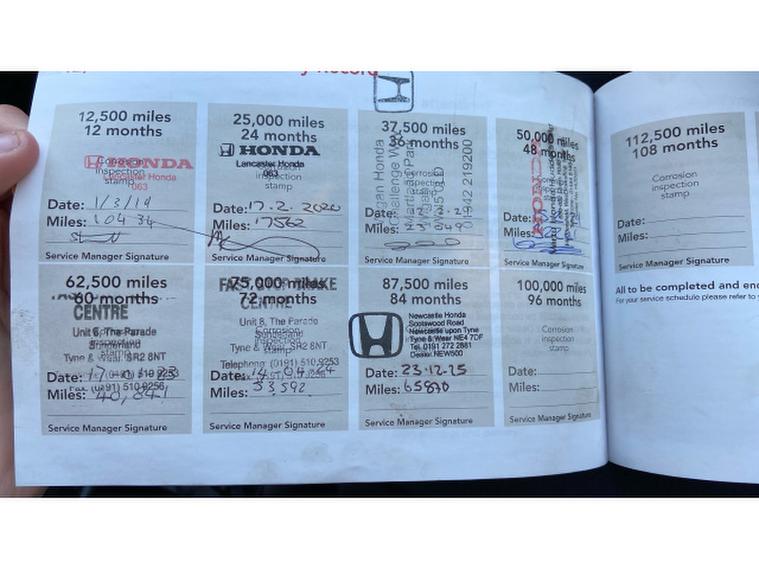 y Record
12,500 miles
12 months
HONDA
Corrosion
inspection
stamp
Lancaster Honda
063
Date: 1/3/19
Miles: 10434
Service Manager Signature
25,000 miles
24 months
HONDA
Lancaster Honda
063
inspection
stamp
Date: 17.2.2020
Miles: 17562
Service Manager Signature
37,500 miles
36 months
Corrosion
inspection
stamp
Honda
01942 219200
Date:
Miles:
Service Manager Signature
50,000 miles
48 months
HONDA
Date:
Miles:
Service Manager Signature
112,500 miles
108 months
Corrosion
inspection
stamp
Date:
Miles:
Service Manager Signature
62,500 miles
60 months
CENTRE
Unit 8, The Parade
Tyne & Wear. SR2 8NT
Date:
Miles: 40,641
Service Manager Signature
75,000 miles
72 months
CENTRE
Unit 8, The Parade
Tyne & Wear. SR2 8NT
Telephone: (0191) 510 9253
Date: 14.04.24
Miles: 53,592
Service Manager Signature
87,500 miles
84 months
Newcastle Honda
Scotswood Road
Newcastle upon Tyne
Tyne & Wear NE4 7DF
Tel. 0191 272 2881
Dealer. NEW500
Date: 23.12.25
Miles: 65870
Service Manager Signature
100,000 miles
96 months
Corrosion
inspection
stamp
Date:
Miles:
Service Manager Signature
All to be completed and
For your service schedule please refer to